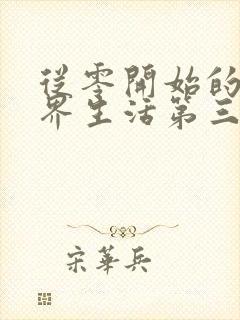 從零開始的
界生活第三
宋華兵